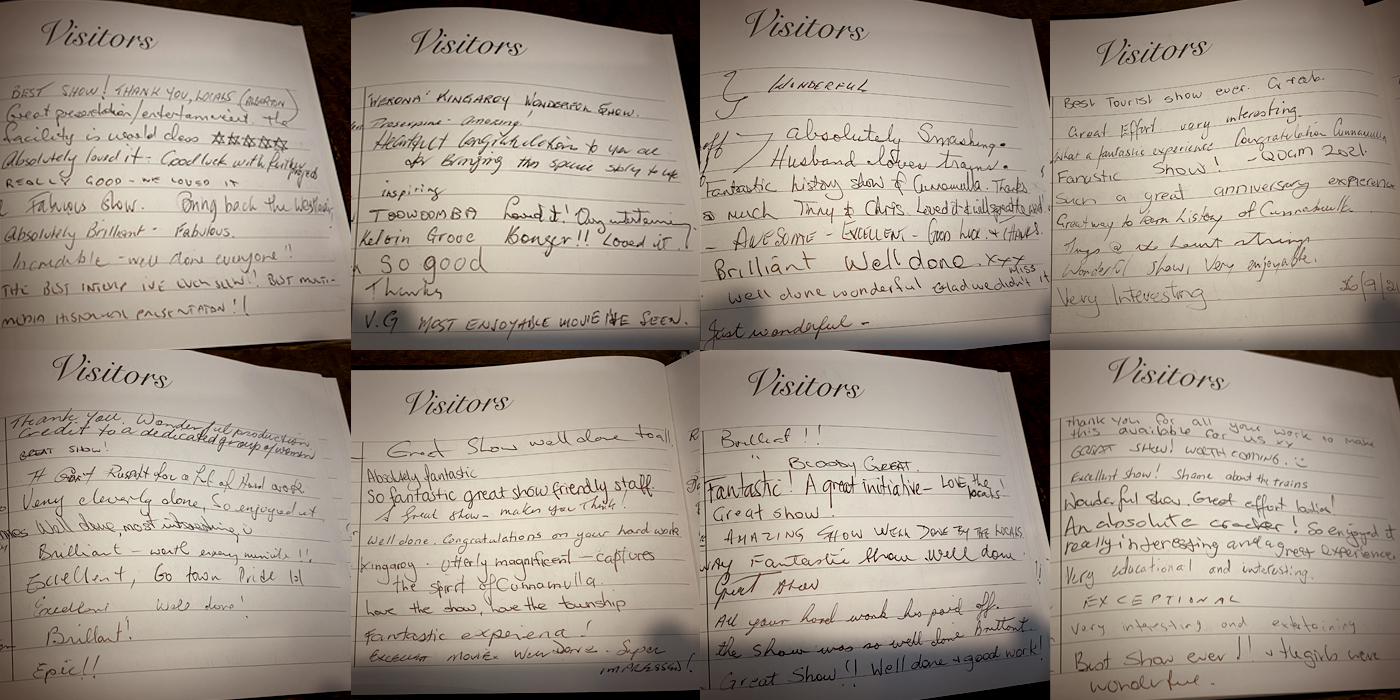 Visitors
BEST SHOW! THANK YOU, LOCALS
Great presentation/entertainment. The
facility is world class ☆☆☆☆☆
Absolutely loved it - Good luck with further projects
REALLY GOOD - WE LOVED IT
Fabulous Show. Bring back the Westlander
Absolutely Brilliant - Fabulous.
Incredible - well done everyone!!
THE BEST INTERP I'VE EVER SEEN!! BEST MULTI-
MEDIA HISTORICAL PRESENTATION!!
Visitors
KINGAROY WONDERFUL SHOW.
Proserpine - Amazing!
Heartfelt Congratulations to you all
for Bringing this special story to life
inspiring
TOOWOOMBA Loved it! Very entertaining
Kelvin Grove Bonzer!! Loved it!
So good
Thanks
V.G MOST ENJOYABLE MOVIE I'VE SEEN.
Visitors
WONDERFUL
absolutely Smashing.
Husband loves trains.
Fantastic history show of Cunnamulla. Thanks
so much Tinny & Chris. Loved it &
- AWESOME - EXCELLENT - Good luck. & CHEERS.
Brilliant Well done. xxx
well done wonderful Glad we didn't miss it
Just wonderful -
Visitors
Best Tourist show ever. Grab.
Great Effort very interesting.
What a fantastic experience Congratulation Cunnamulla
Fanastic Show! - QDGM 2021.
Such a great anniversary experience
Great way to learn history of Cunnamulla.
Tugs @ the heart strings
Wonderful show, Very enjoyable.
Very Interesting 26/9/21
Visitors
Thank You. Wonderful production.
Credit to a dedicated group of women
GREAT SHOW!
Very cleverly done, So enjoyed it
Well done, most interesting
Brilliant - worth every minute!!
Excellent, Go town Pride lol
Excellent Well done!
Brillant!
Epic!!
Visitors
Great Show well done to all!
Absolutely fantastic
So fantastic great show friendly staff
A Great show - makes you think!
Well done. Congratulations on your hard work
Kingaroy. Utterly magnificent - captures
the spirit of Cunnamulla.
love the show, love the township
Fantastic experience!
EXCELLENT MOVIE. WELL DONE. Super
IMPRESSED!
Visitors
Brilliant!!
" BLOODY GREAT.
Fantastic! A great initiative - LOVE the locals!
Great show!
AMAZING SHOW WELL DONE BY THE LOCALS.
Fantastic Show. Well done
Great Show
All your hard work has paid off.
the show was so well done Brillant.
Great Show!! Well done & good work!
Visitors
Thank you for all your work to make
this available for us xx
GREAT SHOW! WORTH COMING. :)
Excellent show! Shame about the trains
Wonderful show. Great effort ladies!
An absolute cracker! So enjoyed it
really interesting and a great experience.
Very educational and interesting.
EXCEPTIONAL
Very interesting and entertaining
Best Show ever!! & the girls were
wonderful.